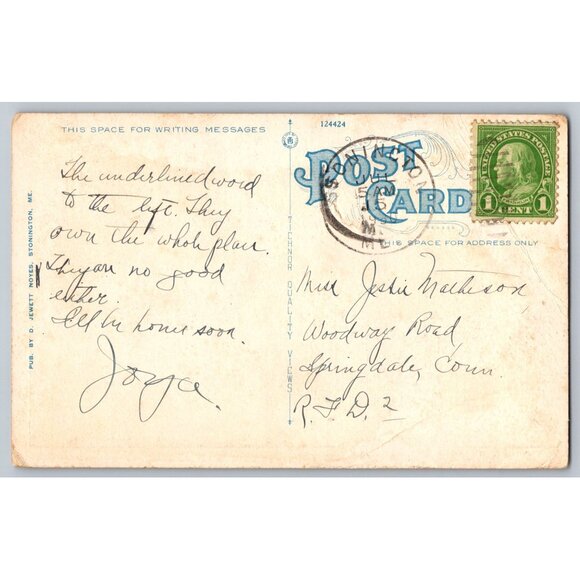 124424
THIS SPACE FOR WRITING MESSAGES
POST CARD
UNITED STATES POSTAGE
1 CENT 1
STONINGTON
THIS SPACE FOR ADDRESS ONLY
The underlined word
to the left. They
own the whole place.
They are no good
either.
I'll be home soon.
Joyce.
PUB. BY D. JEWETT NOYES, STONINGTON, ME.
TICHNOR QUALITY VIEWS
Miss Jessie Matheson
Woodway Road,
Springdale, Conn.
R.F.D. 2